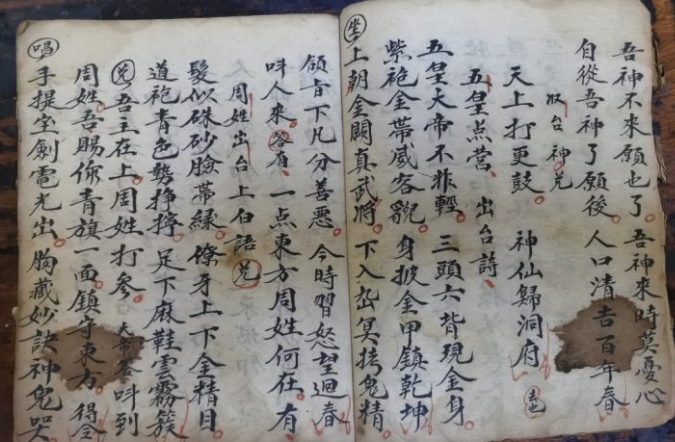 吾神不來願也了。吾神來時莫憂心
自從吾神了願後。人口清吉百年春。
収台神兑
天上打更鼓。神仙歸洞府。去也
五皇点营、出台詩、
五皇大帝不非輕。三頭六背現金身。
紫袍金帶威容貌。身披金甲鎮乾坤
坐上朝金闕真武將。下入酆冥拷鬼精。
領旨下凡分善惡。今時習怒望迴春
叫人來。答有、一点東方周姓何在。有、
周姓出台上白語兑
髮似硃砂臉帶緑。獠牙上下金精目。
道袍青色勢挣擰。足下麻鞋雲霧簇
兑吾主在上。周姓打參。大帝答叫到
周姓。吾賜你青旗一面。鎮守東方。得令
唱手提宝劍電光出。胸藏妙訣神鬼哭